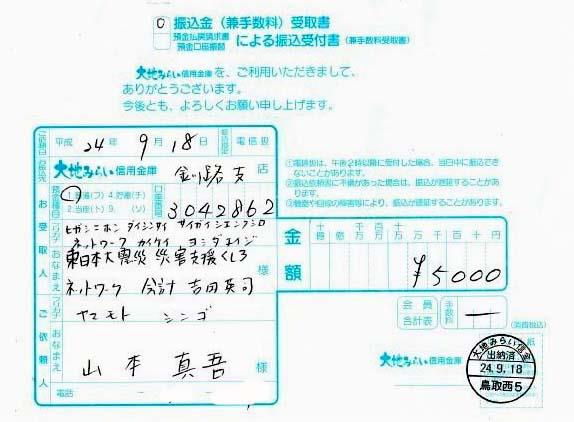 振込金（兼手数料）受取書
預金払戻請求書
預金口座振替
による振込受付書（兼手数料受取書）
大地みらい信用金庫を、ご利用いただきまして、
ありがとうございます。
今後とも、よろしくお願い申し上げます。
ご依頼日 平成 24年 9月 18日 振込指定 電信扱
お振込先 大地みらい信用金庫 釧路支 店
預金種目 1.普通(フ) 4.貯蓄(チ)
2.当座(ト) 9. (ソ)
口座番号 3042862
お受取人
フリガナ ヒガシニホン ダイシンサイ サイガイシエンクシロ
ネットワーク カイケイ ヨシダエイジ
おなまえ 東日本大震災 災害支援くしろ
ネットワーク 会計 吉田英司 様
ご依頼人
フリガナ ヤマモト シンゴ
おなまえ 山本 真吾 様
電話
①電信扱は、午後2時以降に受付した場合、当日中に振込できないことがあります。
②振込依頼書に不備があった場合は、振込が遅延することがあります。
金額 十億千百十万千百十円
¥5000
会員
合計表
手数料 —
(消費税込)
大地みらい信用金庫
大地みらい信金
出納済
24.9.18
鳥取西5